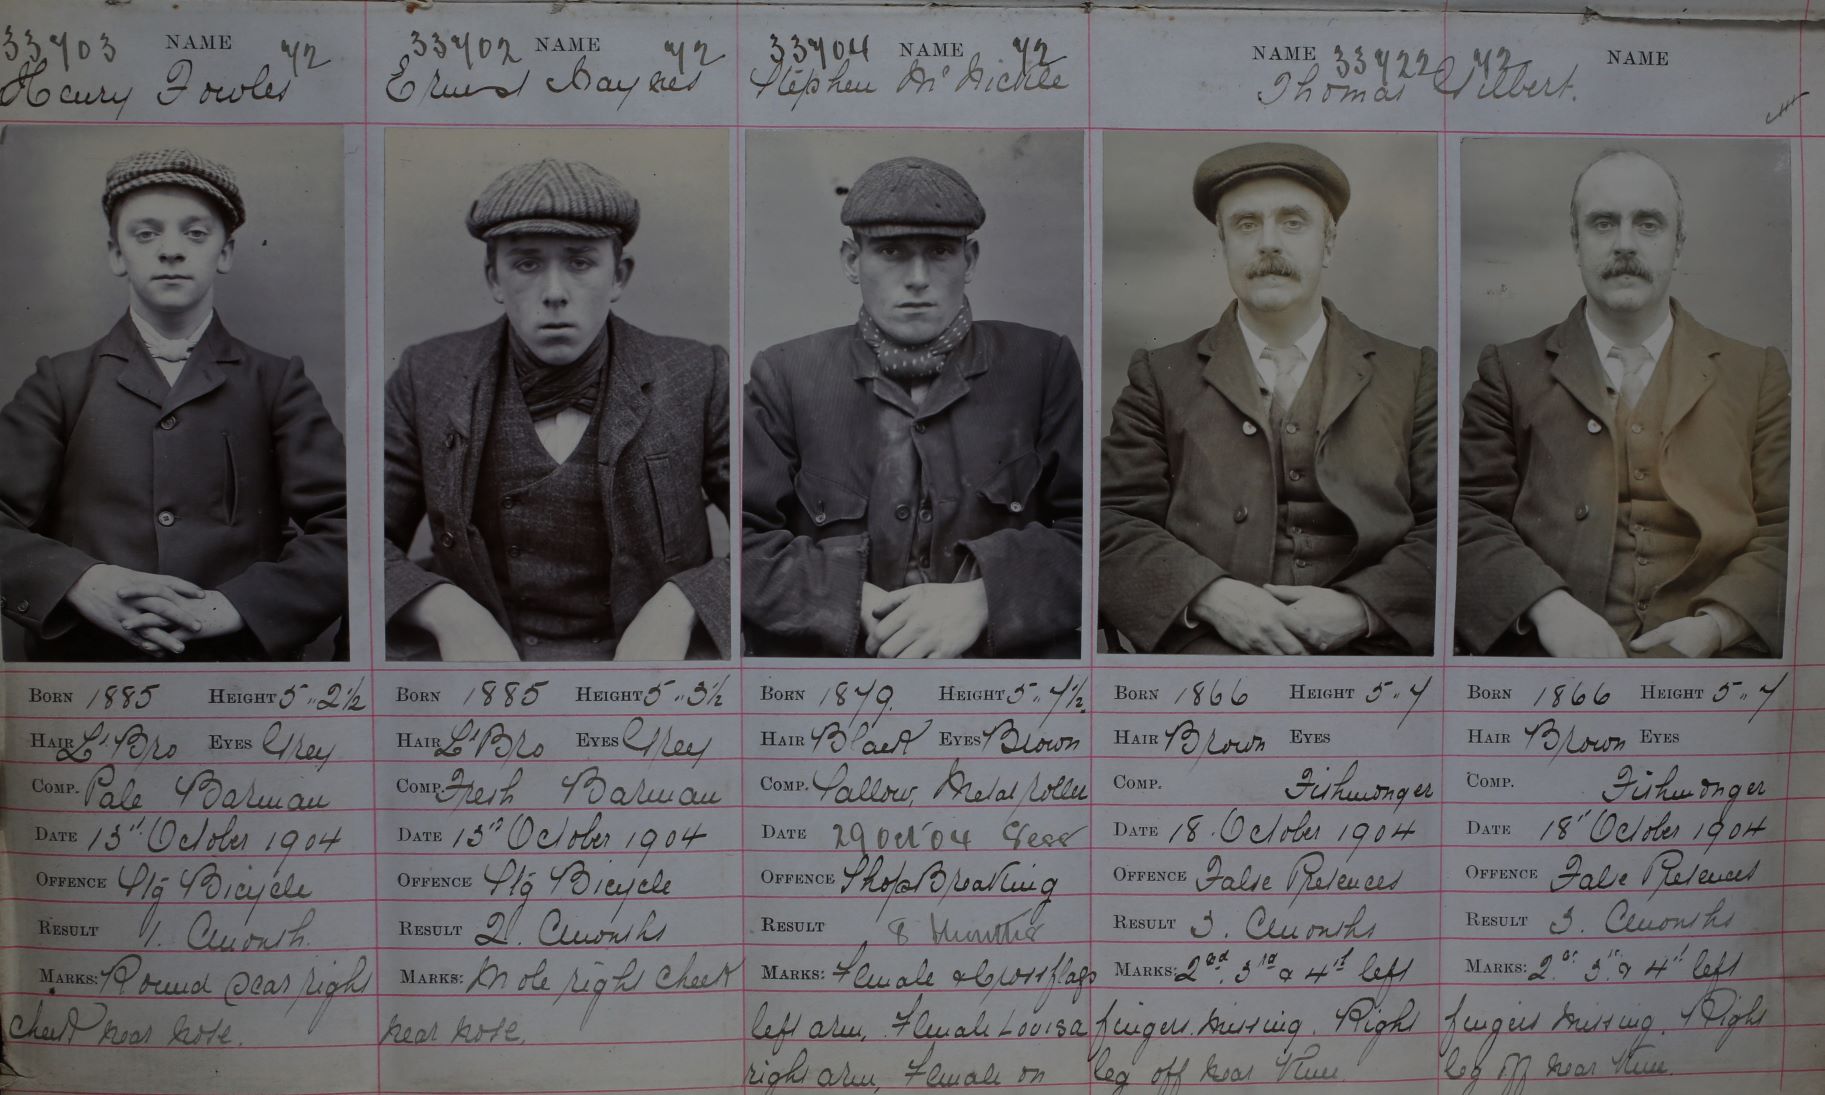 33703 NAME 72
Henry Fowles
BORN 1885 HEIGHT 5 " 2½
HAIR Lt Bro EYES Grey
COMP. Pale Barman
DATE 13th October 1904
OFFENCE Stg Bicycle
RESULT 1. Month.
MARKS: Round scar right
cheek near nose.
33702 NAME 72
Ernest Haynes
BORN 1885 HEIGHT 5 " 3½
HAIR Lt Bro EYES Grey
COMP. Fresh Barman
DATE 13th October 1904
OFFENCE Stg Bicycle
RESULT 2. Months
MARKS: Mole right cheek
near nose.
33704 NAME 72
Stephen Mc Nickle
BORN 1879. HEIGHT 5 " 7½.
HAIR Black EYES Brown
COMP. Sallow, Metal roller
DATE 29 Oct 04 Sess
OFFENCE Shop Breaking
RESULT 8 Months
MARKS: Female & Cross flags
left arm, Female Louisa
right arm, Female on
NAME 33722 72 NAME
Thomas Gilbert.
BORN 1866 HEIGHT 5 " 7
HAIR Brown EYES
COMP. Fishmonger
DATE 18. October 1904
OFFENCE False Pretences
RESULT 3. Months
MARKS: 2nd. 3rd & 4th left
fingers missing. Right
leg off near knee.
BORN 1866 HEIGHT 5 " 7
HAIR Brown EYES
COMP. Fishmonger
DATE 18th October 1904
OFFENCE False Pretences
RESULT 3. Months
MARKS: 2nd 3rd & 4th left
fingers missing. Right
leg off near knee.